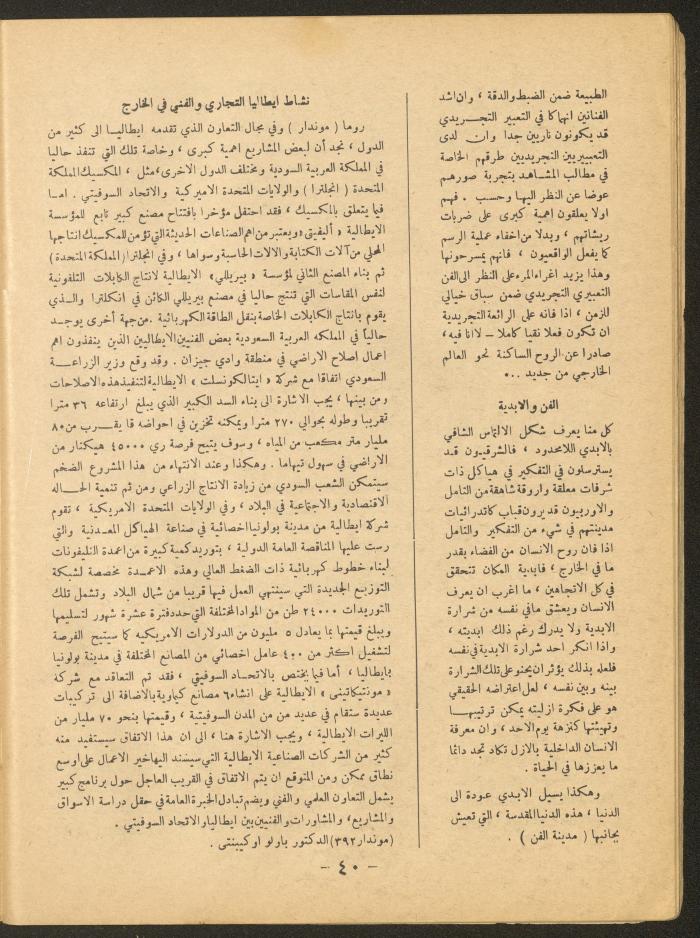 الطبيعة ضمن الضبط والدقة ، وان اشد
الفنانين انهماكا في التعبير التجـــريدي
قد يكونون ناريين جدا وان لدى
التعبيريين التجريديين طرقهم الخاصة
في مطالب المشـاهد بتجربة صورهـم
عوضا عن النظر اليها وحسب . فهـم
اولا يعلقون اهمية كبرى على ضربات
ريشاتهم ، وبدلا من اخفاء عملية الرسم
كما يفعل الواقعيون ، فانهم يسرحونها
وهذا يزيد اغراء المرء على النظر الى الفن
التعبيري التجريدي ضمن سباق خيالي
للزمن ، اذا فانه على الرائعة التجريدية
ان تكون فعلا نقيا كاملا ــ لا انا فيه ،
صادرا عن الروح الساكنة نحو العالم
الخارجي من جديد ...
الفن والابدية
كل منا يعرف شكل الالتماس الشافي
بالابدي اللامحدود ، فالشرقيـون قـد
يسترسلون في التفكير في هياكل ذات
شرفات معلقة واروقة شاهقة من التامل
والاوربيون قديرون قباب كاتدرائيات
مدينتهم في شيء من التفكير والتأمل
اذا فان روح الانسان من الفضاء بقدر
ما في الخارج ، فابدية المكان تتحقق
في كل الاتجاهين ، ما اغرب ان يعرف
الانسان ويعشق ما في نفسه من شرارة
الابدية ولا يدرك رغم ذلك ابديته ،
واذا انكر احد شرارة الابدية في نفسه
فلعله بذلك يؤثر ان يحنو على تلك الشرارة
بينه وبين نفسه ، لعل اعتراضه الحقيقي
هو على فكرة ازليته يمكن ترتيبهـــا
وتهيئتها كنزهة يوم الاحد ، وان معرفة
الانسان الداخلية بالازل تكاد تجد دائما
ما يعززها في الحياة .
وهكذا يسيل الابدي عـودة الى
الدنيا ، هذه الدنيا المقدسة ، التي تعيش
بجانبها ( مدينة الفن ) .
نشاط ايطاليا التجاري والفني في الخارج
روما ( موندار ) وفي مجال التعاون الذي تقدمه ايطاليـا الى كثير من
الدول ، نجد أن لبعض المشاريع اهمية كبرى ، وخاصة تلك التي تنفذ حاليا
في المملكة العربية السودية ومختلف الدول الاخرى ، مثل ، المكسيك المملكة
المتحدة ( انجلترا ) والولايات المتحدة الاميركية والاتحاد السوفيتي . امـا
فيما يتعلق بالمكسيك ، فقد احتفل مؤخرا بافتتاح مصنع كبير تابع للمؤسسة
الايطالية « أليفيتي » ويعتبر من اهم الصناعات الحديثة التي تؤمن للمكسيك انتاجها
المحلي من آلات الكتابة والالات الحاسبة وسواها ، وفي انجلترا ( المملكة المتحدة )
تم بناء المصنع الثاني لمؤسسة « بيريللي » الايطالية لانتاج الكابلات التلفونية
لنفس المقاسات التي تنتج حاليا في مصنع بيريللي الكائن في انكلترا والــذي
يقوم بانتاج الكابلات الخاصة بنقل الطاقة الكهربائية . من جهة أخرى يوجـد
حالياً في المملكه العربية السعودية بعض الفنيين الايطاليين الذين ينفذون اهم
اعمال اصلاح الاراضي في منطقة وادي جيزان . وقد وقع وزير الزراعــة
السعودي اتفاقا مع شركة « ايتالكونسلت » الايطالية لتنفيذ هذه الاصلاحات
ومن بينها ، يجب الاشارة الى بناء السد الكبير الذي يبلغ ارتفاعه ٣٦ مترا
تقريبا وطوله بحوالي ٢٧٠ مترا ويمكنه تخزين في احواضه قا يقــرب من ٨٠
مليار متر مكعب من المياه ، وسوف يتيح فرصة ري ٤٥٠٠٠ هيكتار من
الاراضي في سهول تيهاما . وهكذا وعند الانتهاء من هذا المشروع الضخم
سيتمكن الشعب السودي من زيادة الانتاج الزراعي ومن ثم تنمية الحـاله
الاقتصادية والاجتماعية في البلاد ، وفي الولايات المتحدة الاميركية ، تقوم
شركة ايطالية من مدينة بولونيا اخصائية في صناعة الهياكل المعـدنية والتي
رست عليها المناقصة العامة الدولية ، بتوريد كمية كبيرة من اعمدة التليفونات
لبناء خطوط كهربائية ذات الضغط العالي وهذه الاعمـدة مخصصة لشبكة
التوزيع الجديدة التي سينتهي العمل فيها قريبا من شمال البلاد وتشمل تلك
التوريدات ٢٤٠٠٠ طن من المواد المختلفة التي حدد فترة عشرة شهور لتسليمها
ويبلغ قيمتها بما يعادل ٥ مليون من الدولارات الامريكيه كما سيتيح الفرصة
لتشغيل اكثر من ٤٠٠ عامل اخصائي من المصانع المختلفة في مدينة بولونيا
بايطاليا ، أما فيما يختص بالاتحـاد السوفيتي ، فقد تم التعاقد مع شركة
« مونتيكاتيني » الايطالية على انشاء ٦ مصانع كيماوية بالاضافة الى تركيبات
عديدة ستقام في عديد من من المدن السوفيتية ، وقيمتها بنحو ٧٠ مليار من
الليرات الايطالية ، ويجب الاشارة هنا ، الى ان هذا الاتفاق سيستفيد منه
كثير من الشركات الصناعية الايطالية التي سيسند اليها خير الاعمال على اوسع
نطاق ممكن ومن المتوقع ان يتم الاتفاق في القريب العاجل حول برنامج كبير
يشمل التعاون العلمي والفني ويضم تبادل الخبرة العامة في حقل دراسة الاسواق
والمشاريع ، والمشاورات والفنيين بين ايطاليا والاتحاد السوفيتي .
( موندار ٣٩٢ ) الدكتور باولو اوكيبنتى .
- ٤٠ -